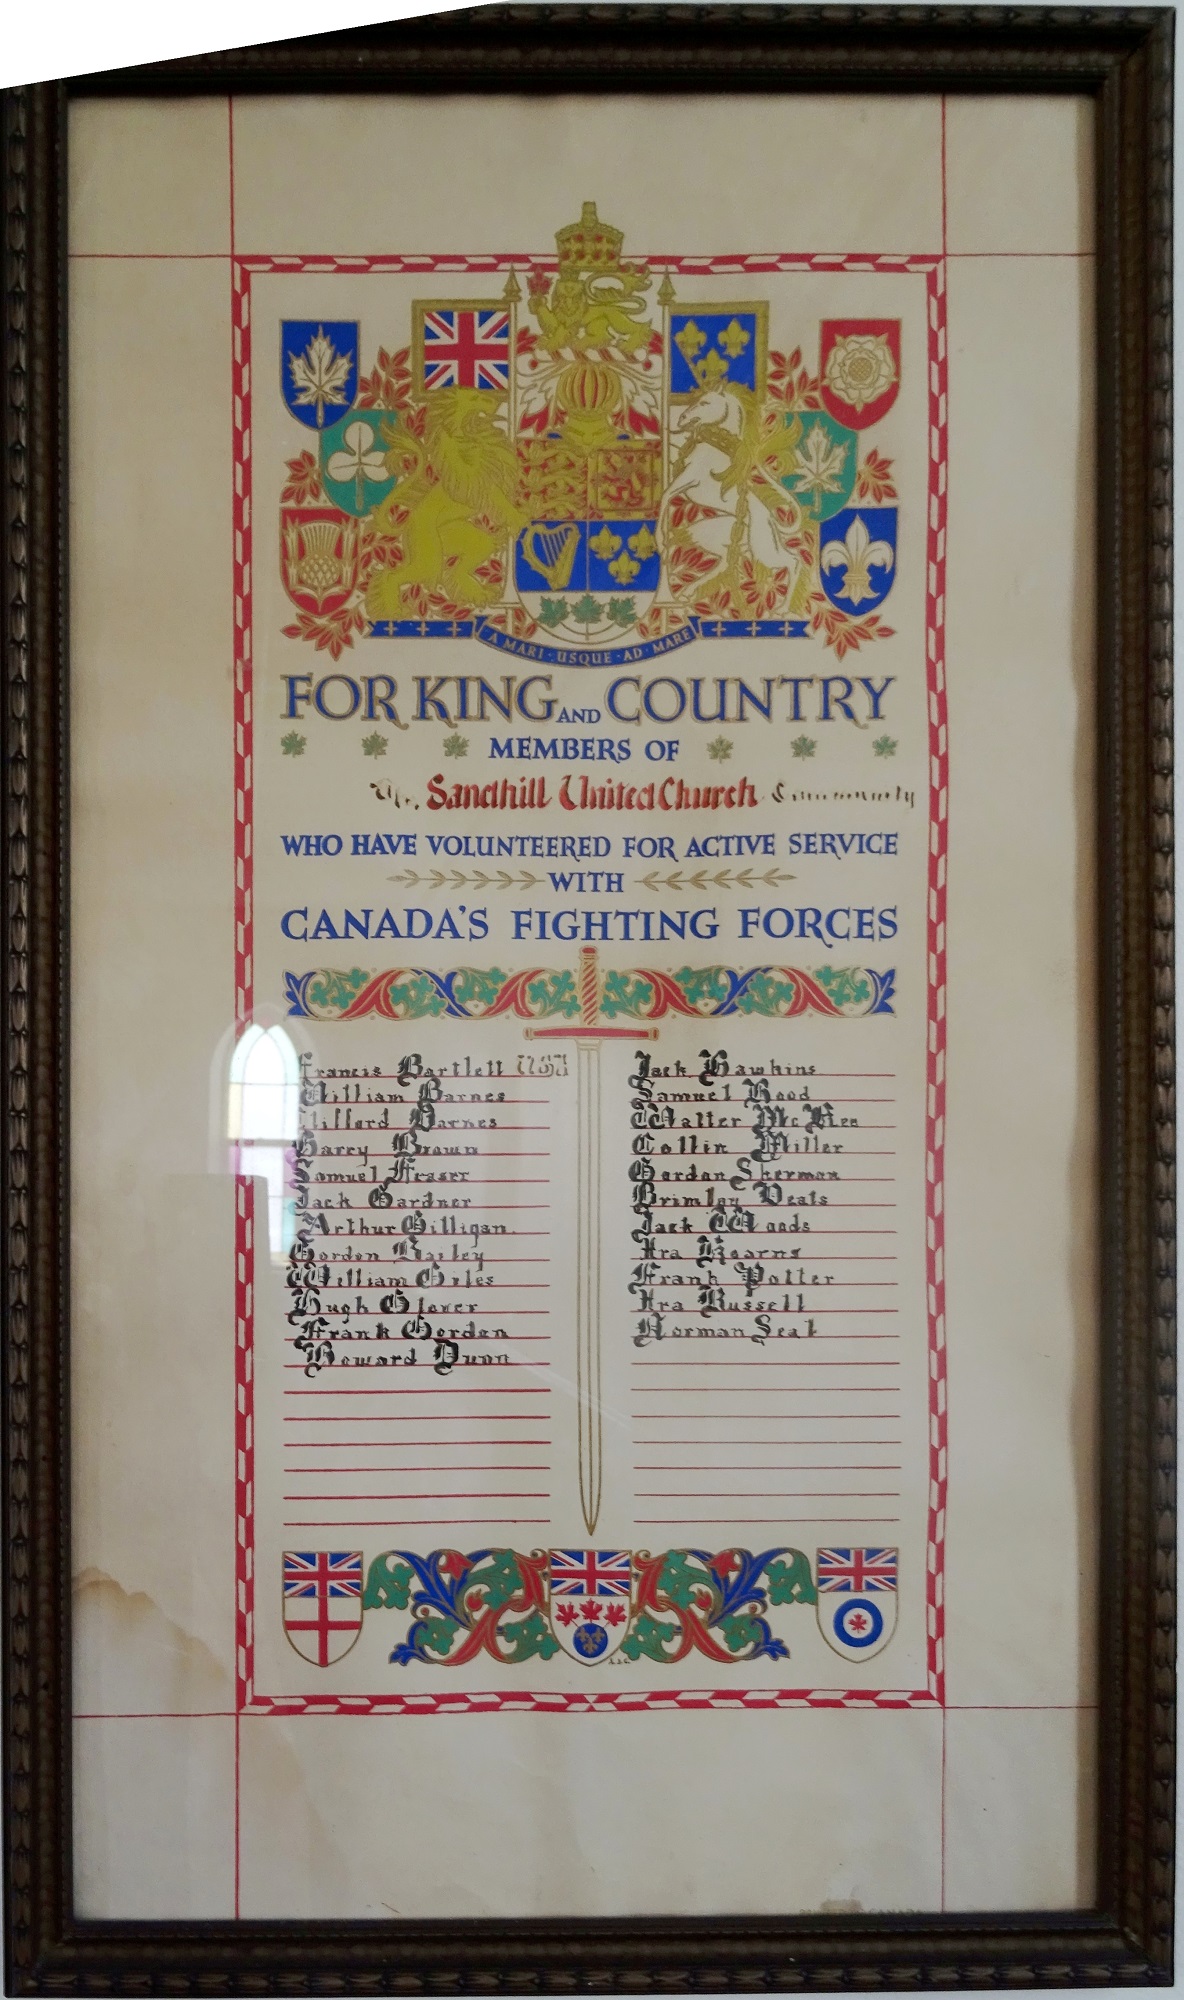 A MARI · USQUE · AD · MARE
FOR KING AND COUNTRY
MEMBERS OF
The Sandhill United Church Community
WHO HAVE VOLUNTEERED FOR ACTIVE SERVICE
WITH
CANADA'S FIGHTING FORCES
Francis Bartlett
William Barnes
Clifford Barnes
Harry Brown
Samuel Fraser
Jack Gardner
Arthur Gilligan
Gordon Bailey
William Giles
Hugh Glover
Frank Gordon
Howard Dunn
Jack Hawkins
Samuel Hood
Walter McKee
Collin Miller
Gordon Sherman
Brimley Veals
Jack Woods
Ira Kearns
Frank Potter
Ira Russell
Norman Seal
CANADA